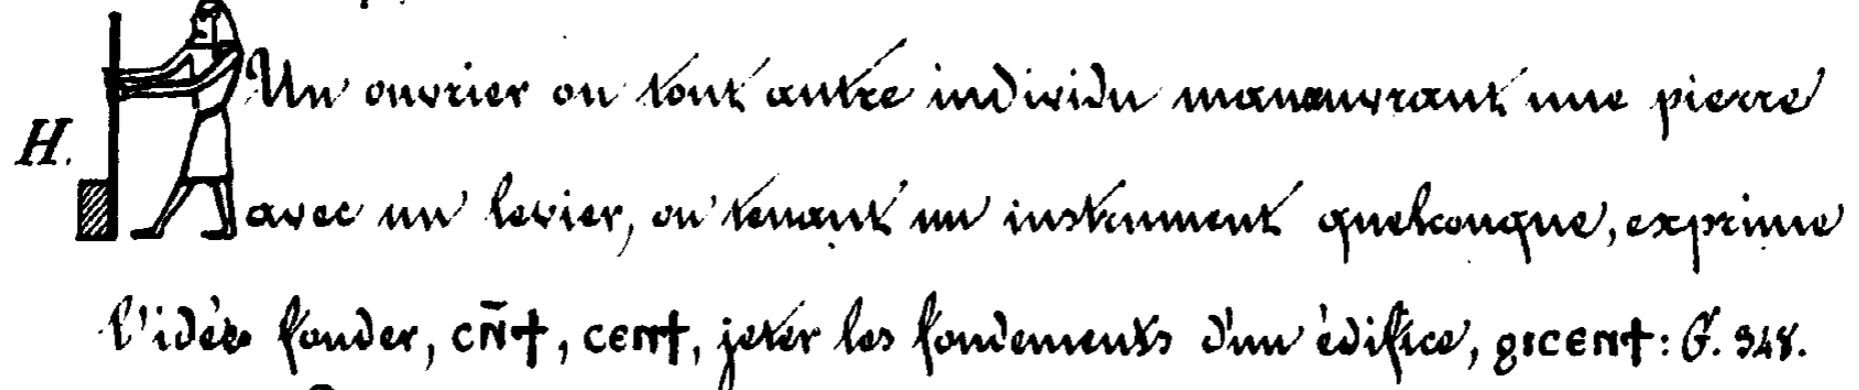 H.
Un ouvrier ou tout autre individu manœuvrant une pierre
avec un levier, ou tenant un instrument quelconque, exprime
l'idée fonder, ⲥⲛ̄ϯ, ⲥⲉⲛϯ, jeter les fondements d'un édifice, ϩⲓⲥⲉⲛϯ: G. 348.